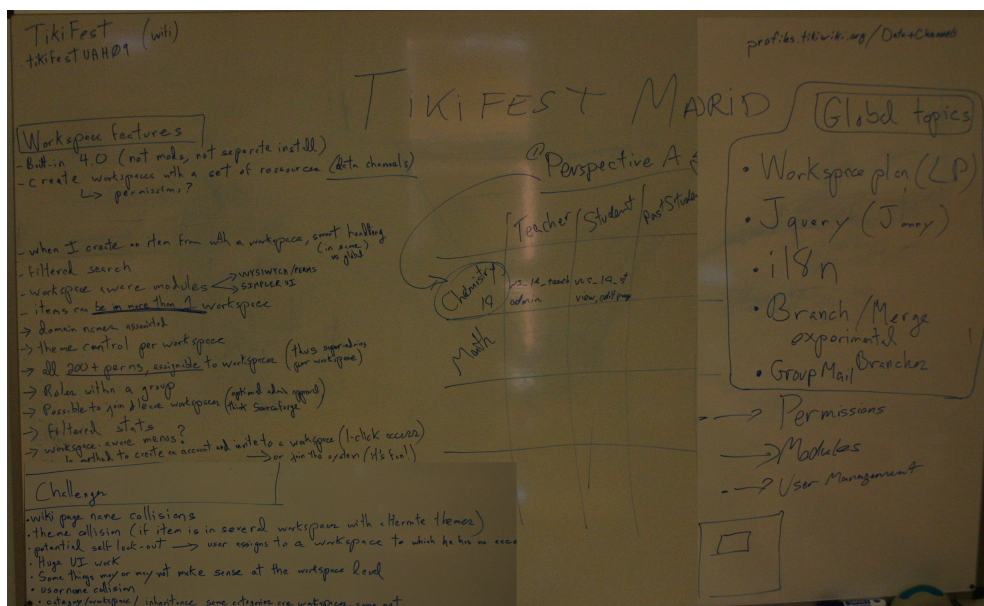 TikiFest (wiki)
tikifestUAH09
profiles.tikiwiki.org/Data+Channels
TIKIFEST MADRID
Workspace features
- Built-in 4.0 (not mods, not separate install)
- Create workspaces with a set of resources (data channels)
↳ permissions?
- when I create an item from with a workspace, smart handling
(in some vs global)
- filtered search
- workspace aware modules
WYSIWYCA/PERMS
SIMPLER UI
- items can be in more than 1 workspace
→ domain names associated
→ theme control per workspace
→ all 200+ perms, assignable to workspaces (thus superadmin per workspace)
→ Roles within a group
→ Possible to join & leave workspaces (optional admin approval think Sourceforge)
→ Filtered stats
→ workspace-aware menus?
↳ method to create an account and invite to a workspace (1-click access)
→ or join the system (it's fun!)
Challenges
• wiki page name collisions
• theme collision (if item is in several workspaces with different themes)
• potential self lock-out → user assigns to a workspace to which he has no
• Huge UI work
• Some things may or may not make sense at the workspace level
• username collision
• category/workspace/inheritance some categories are workspaces, some not
@Perspective A
Teacher Student
Chemistry
admin view, edit
Math
Global topics
• Workspace plan (LP)
• Jquery (Jonny)
• i18n
• Branch/Merge
experimental
Branches
• GroupMail
→ Permissions
→ Modules
→ User Management